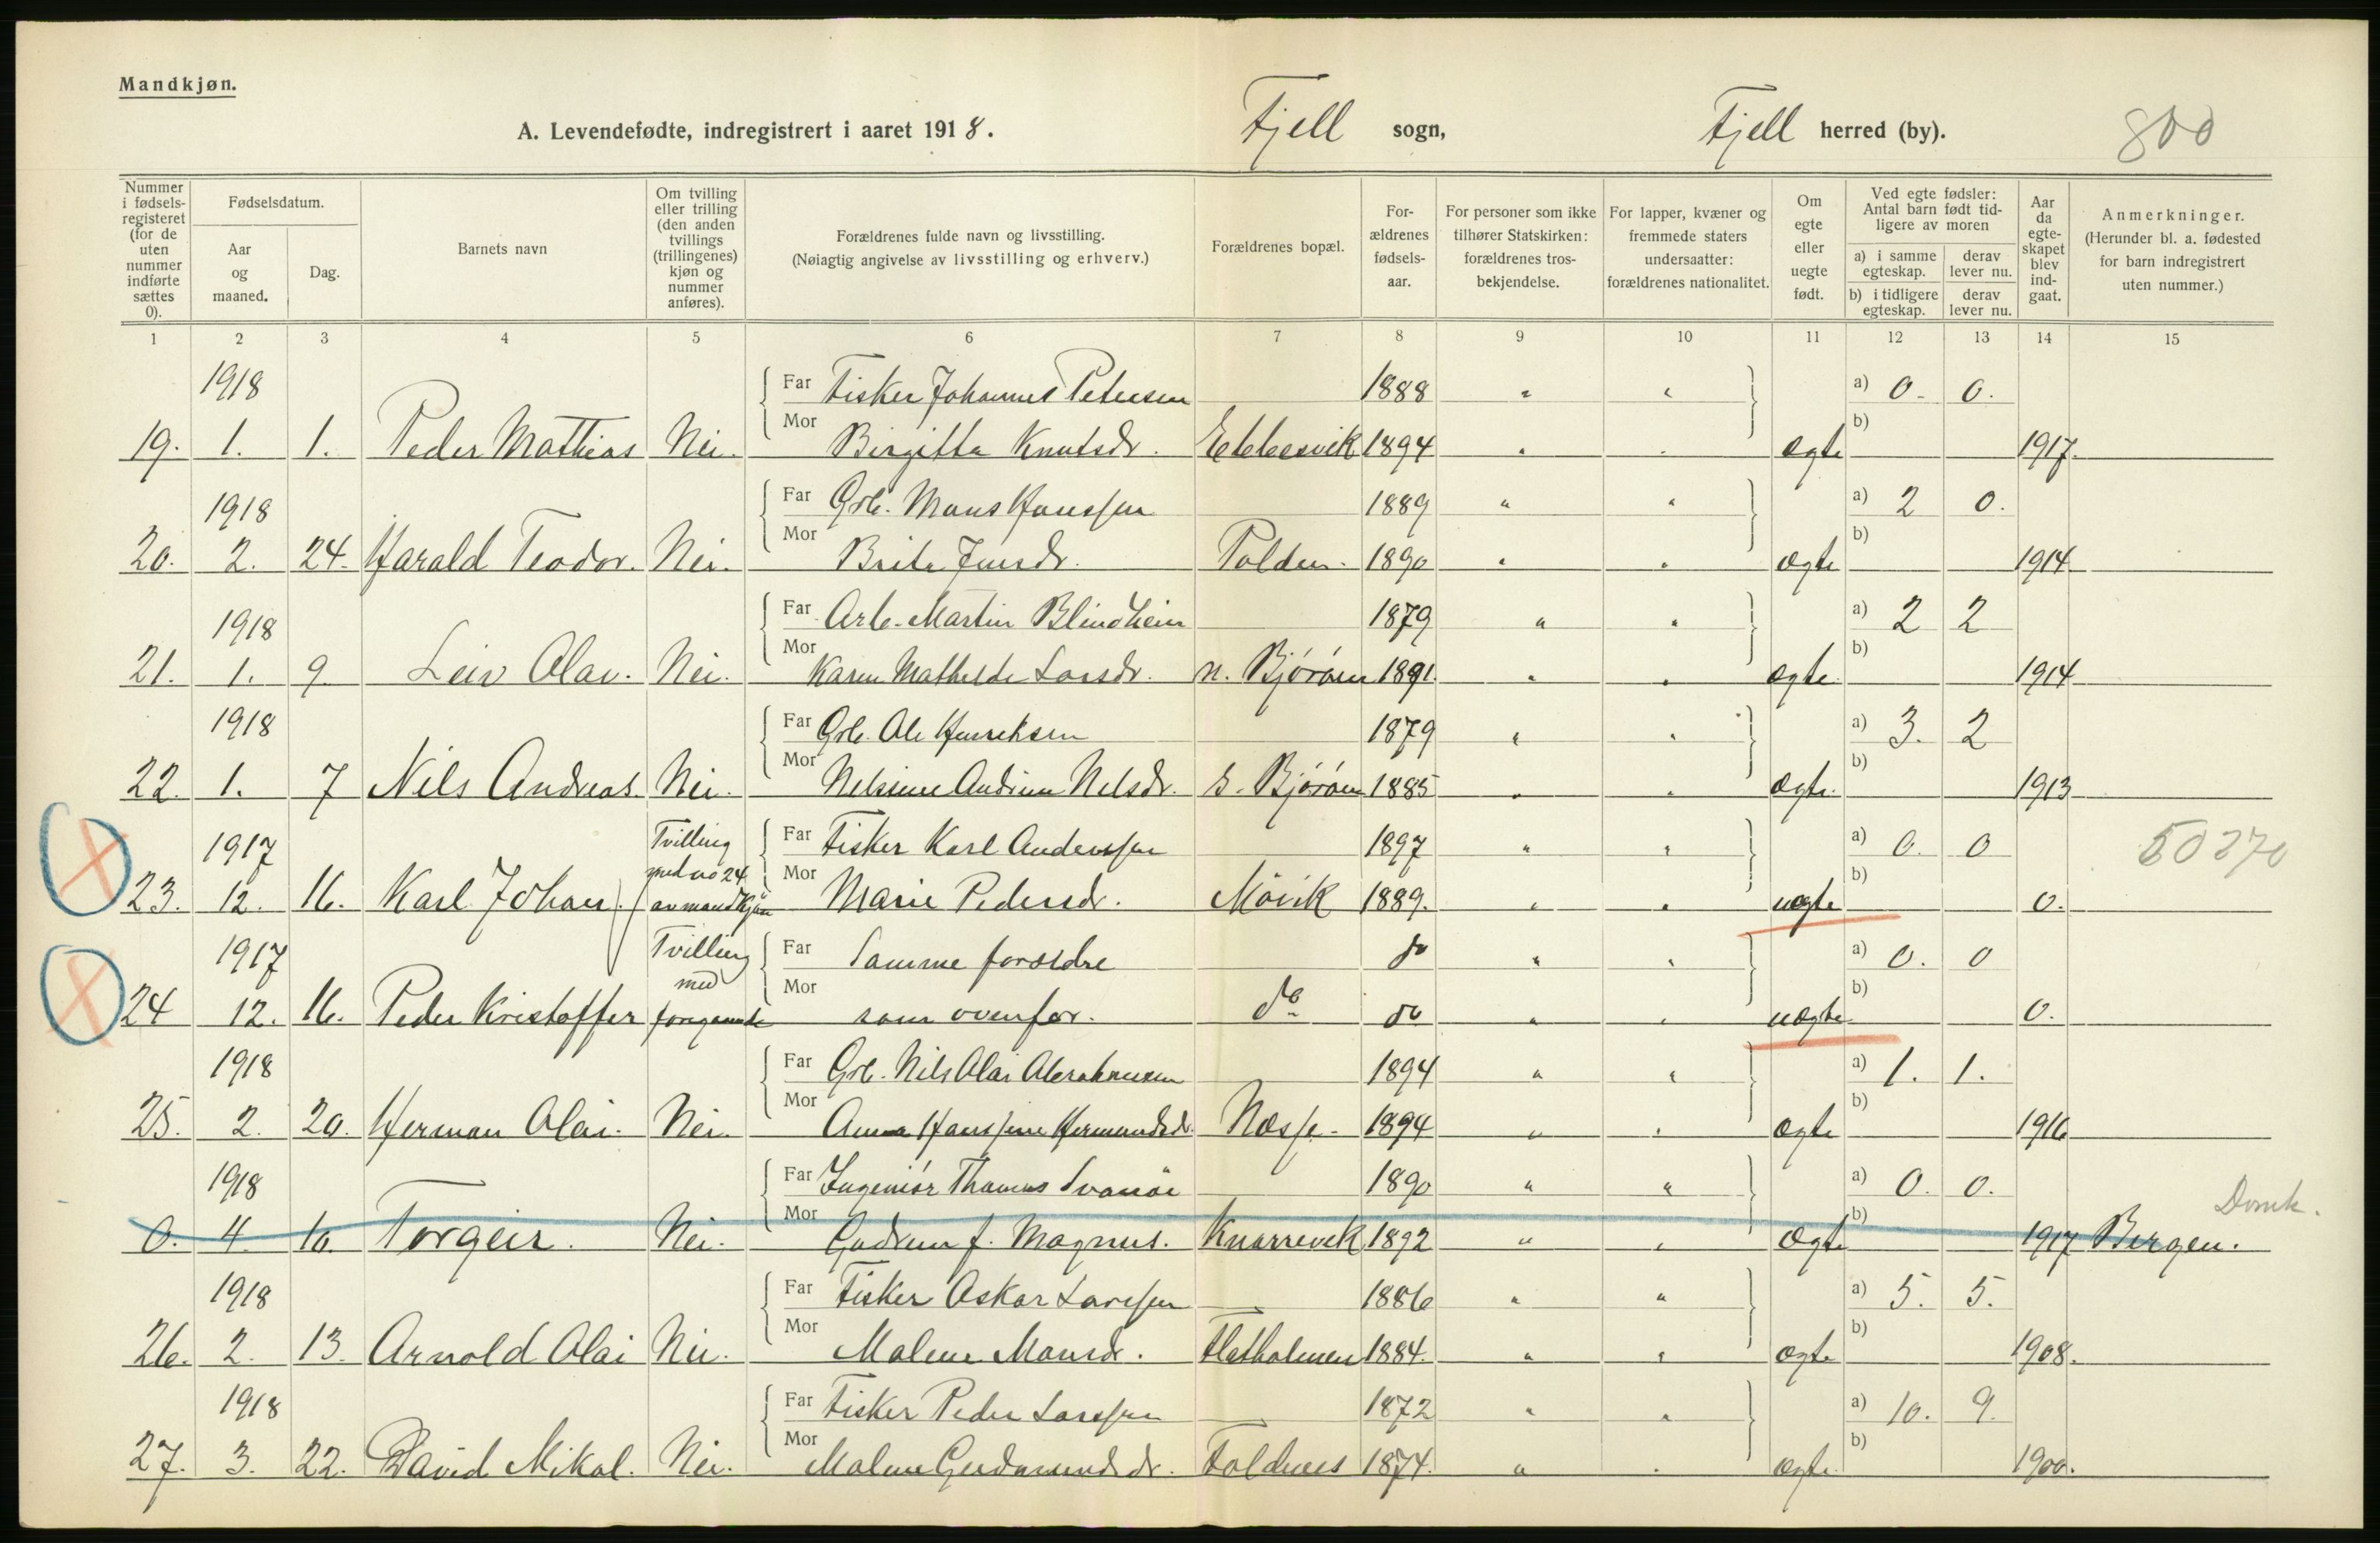 Mandkjøn.
A. Levendefødte, indregistrert i aaret 1918. Fjell sogn, Fjell herred (by). 800
Nummer i fødselsregisteret (for de uten nummer indførte sættes 0).
Fødselsdatum.
Aar og maaned.
Dag.
Barnets navn
Om tvilling eller trilling (den anden tvillings (trillingenes) kjøn og nummer anføres).
Forældrenes fulde navn og livsstilling.
(Nøiagtig angivelse av livsstilling og erhverv.)
Forældrenes bopæl.
Forældrenes fødselsaar.
For personer som ikke tilhører Statskirken: forældrenes trosbekjendelse.
For lapper, kvæner og fremmede staters undersaatter: forældrenes nationalitet.
Om egte eller uegte født.
Ved egte fødsler: Antal barn født tidligere av moren
a) i samme egteskap. derav lever nu.
b) i tidligere egteskap. derav lever nu.
Aar da egteskapet blev indgaat.
Anmerkninger.
(Herunder bl. a. fødested for barn indregistrert uten nummer.)
1 2 3 4 5 6 7 8 9 10 11 12 13 14 15
1918 Far Fisker Johannes Petersen 1888 " " a) 0. 0.
19. 1. 1. Peder Mathias Nei. Mor Birgitta Knutsdr. Ebbesvik 1894 " " ægte b) 1917.
1918 Far Grb. Mons Hanssen 1889 " " a) 2 0.
20. 2. 24. Harald Teodor. Nei. Mor Brita Jensdr. 1890 " " ægte b) 1914
1918 Far Arb. Martin Blindheim 1879 " " a) 2 2
21. 1. 9 Leiv Olav. Nei. Mor Karen Mathilde Larsdr. n. Bjørøen 1891. " " ægte. b) 1914
1918 Far Grb. Ole Henriksen 1879 " " a) 3. 2
22. 1. 7 Nils Andreas. Nei. Mor Nilsine Andrine Nelsdr. s. Bjørøen 1885 " " ægte. b) 1913
1917 Tvilling Far Fisker Karl Anderssen 1897 " " a) 0. 0 50270
med no 24
23. 12. 16. Karl Johan. av mandkjøn Mor Marie Pedersdr. Møvik 1889. " " uægte b) 0.
1917 Tvilling Far Samme foreldre do " " a) 0. 0
med
24 12. 16. Peder Kristoffer foregaaende Mor som ovenfor. do do " " uægte b) 0.
1918 Far Grb. Nils Olai Abrahamsen 1894 " " a) 1. 1.
25. 2. 20. Herman Olai. Nei. Mor Anna Hanssine Hermundsdr. Nesse 1894 " " ægte b) 1916
1918 Far Ingeniør Thomas Svanøe 1890 " " a) 0. 0. Domk.
0. 4. 10. Torgeir. Nei. Mor Gudrun f. Magnus. Knarrevik 1892 " " ægte b) 1917 Bergen.
1918 Far Fisker Oskar Larssen 1886 " " a) 5. 5.
26. 2. 13. Arnold Olai Nei. Mor Malene Monsdr. Flatholmen 1884. " " ægte b) 1908.
1918 Far Fisker Peder Larssen 1872 " " a) 10. 9.
27. 3. 22. David Mikal. Nei. Mor Malene Gudmundsdr. Foldnes 1874. " " ægte. b) 1900.